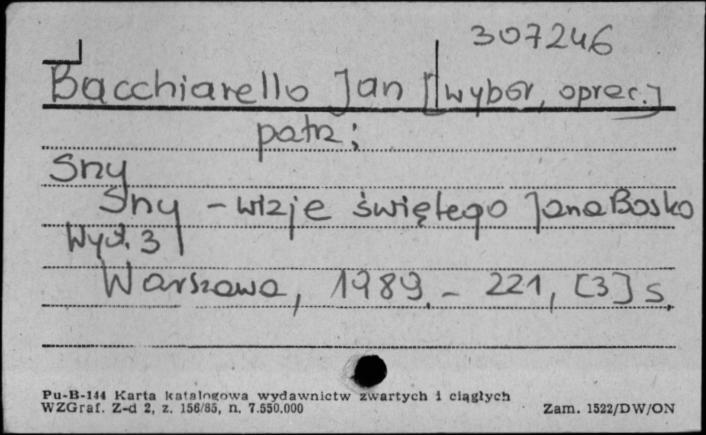 307246
Bacchiarello Jan [wybór, oprac.]
patrz:
Sny
Sny - wizje świętego Jana Bosko
Wyd. 3
Warszawa, 1989. - 221, [3] s.
Pu-B-144 Karta katalogowa wydawnictw zwartych i ciągłych
WZGraf. Z-d 2, z. 156/85, n. 7.550.000
Zam. 1522/DW/ON